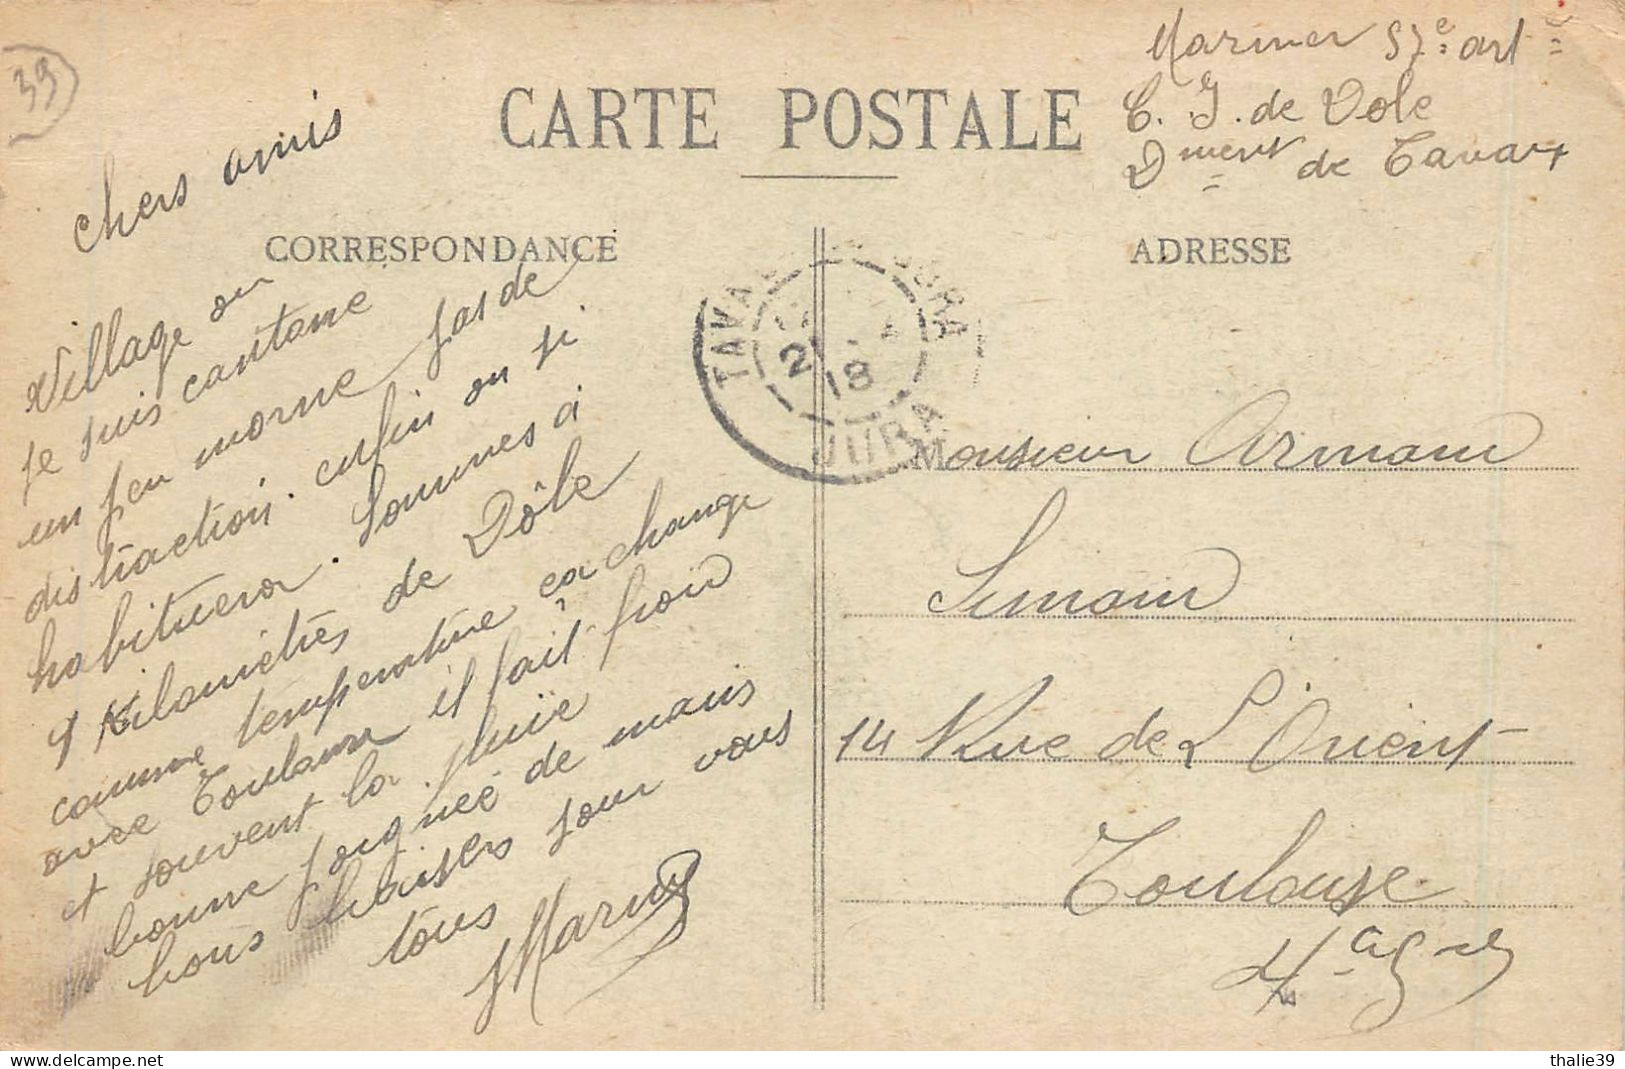 39
CARTE POSTALE
Mariner 57e art
C. I. de Dole
Dment de Tavaux
CORRESPONDANCE
ADRESSE
chers amis
Village ou
je suis cantonne
un peu morne pas de
distraction. enfin on si
habituera. Sommes à
9 Kilomètres de Dôle
comme température ça change
avec Toulouse il fait froid
et souvent la pluie
bonne poignée de mains
bons baisers pour vous
tous
JURA
21
18
JURA
Monsieur Armand
Simain
14 Rue de L'Orient
Toulouse
Hte Gne
thalie39